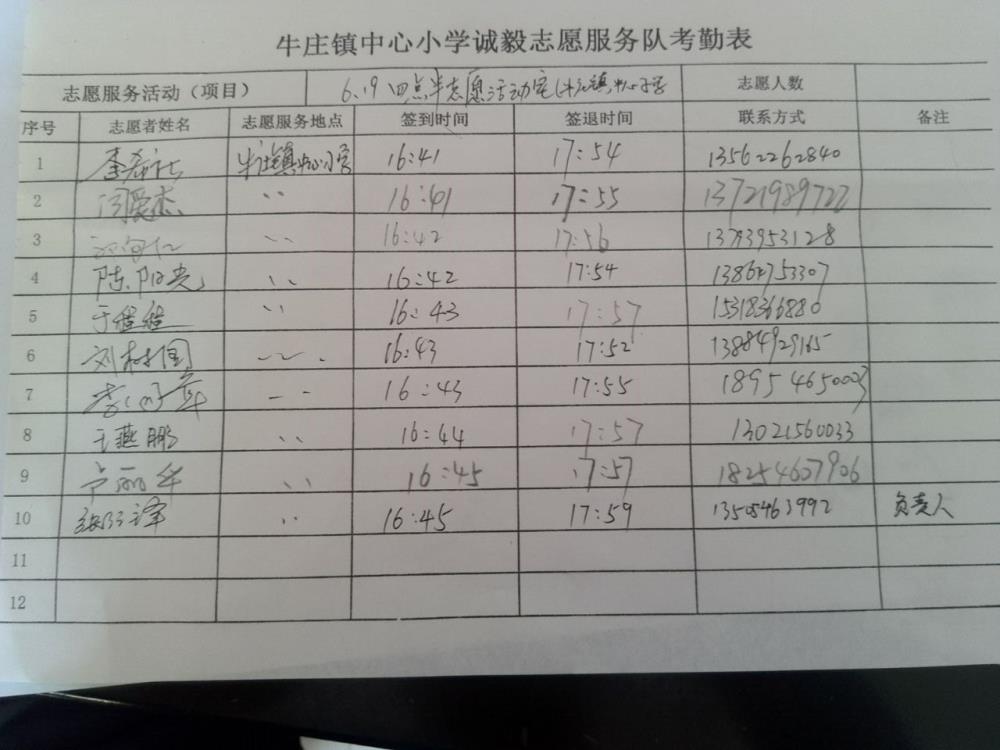 牛庄镇中心小学诚毅志愿服务队考勤表
志愿服务活动（项目） 6.19 四点半志愿活动室（牛庄镇中心小学 志愿人数
序号 志愿者姓名 志愿服务地点 签到时间 签退时间 联系方式 备注
1 牛庄镇中心小学 16:41 17:54 13562262840
2 闫爱杰 〃 16:41 17:55 13721989722
3 〃 16:42 17:56 13793953128
4 陈阳光 〃 16:42 17:54 13864753307
5 于桂桂 〃 16:43 17:57 15318366880
6 刘树国 〃 16:43 17:52 13884929165
7 〃 16:43 17:55 18954650003
8 王燕鹏 〃 16:44 17:57 13021560033
9 卢丽华 〃 16:45 17:57 18254607906
10 〃 16:45 17:59 13505463992 负责人
11
12